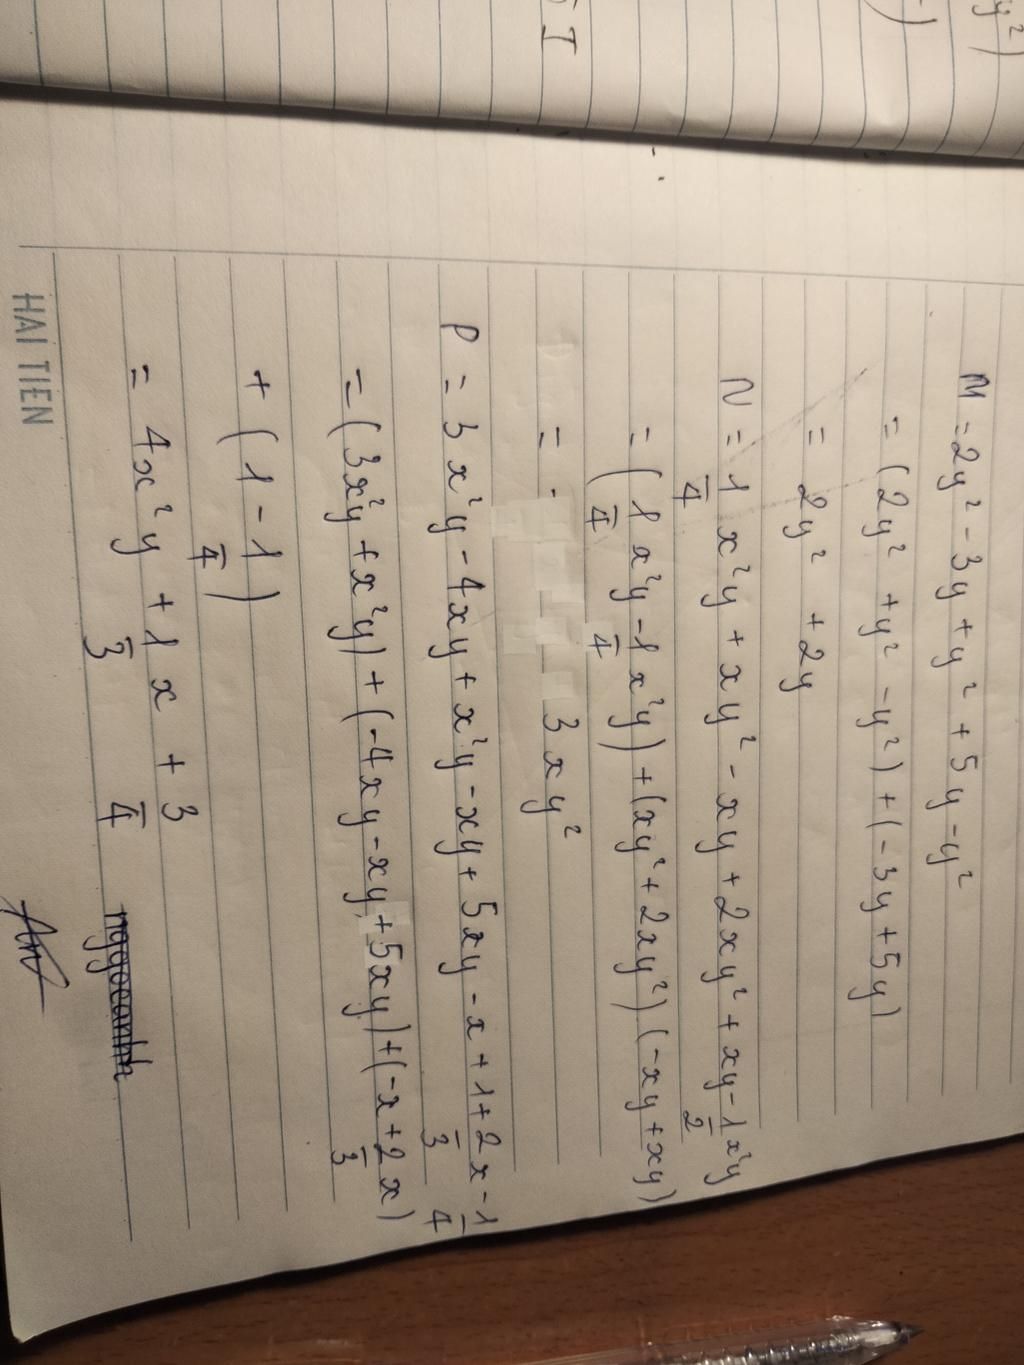 y²)
5 I
M = 2y² - 3y + y² + 5y - y²
= (2y² + y² - y²) + (-3y + 5y)
= 2y² + 2y
N = 1/4 x²y + xy² - xy + 2xy² + xy - 1/2 x²y
= (1/4 x²y - 1/4 x²y) + (xy² + 2xy²) (-xy + xy)
= 3xy²
P = 3x²y - 4xy + x²y - xy + 5xy - x + 1 + 2/3 x - 1/4
= (3x²y + x²y) + (-4xy - xy + 5xy) + (-x + 2/3 x)
+ (1 - 1/4)
= 4x²y + 1/3 x + 3/4
HAI TIEN